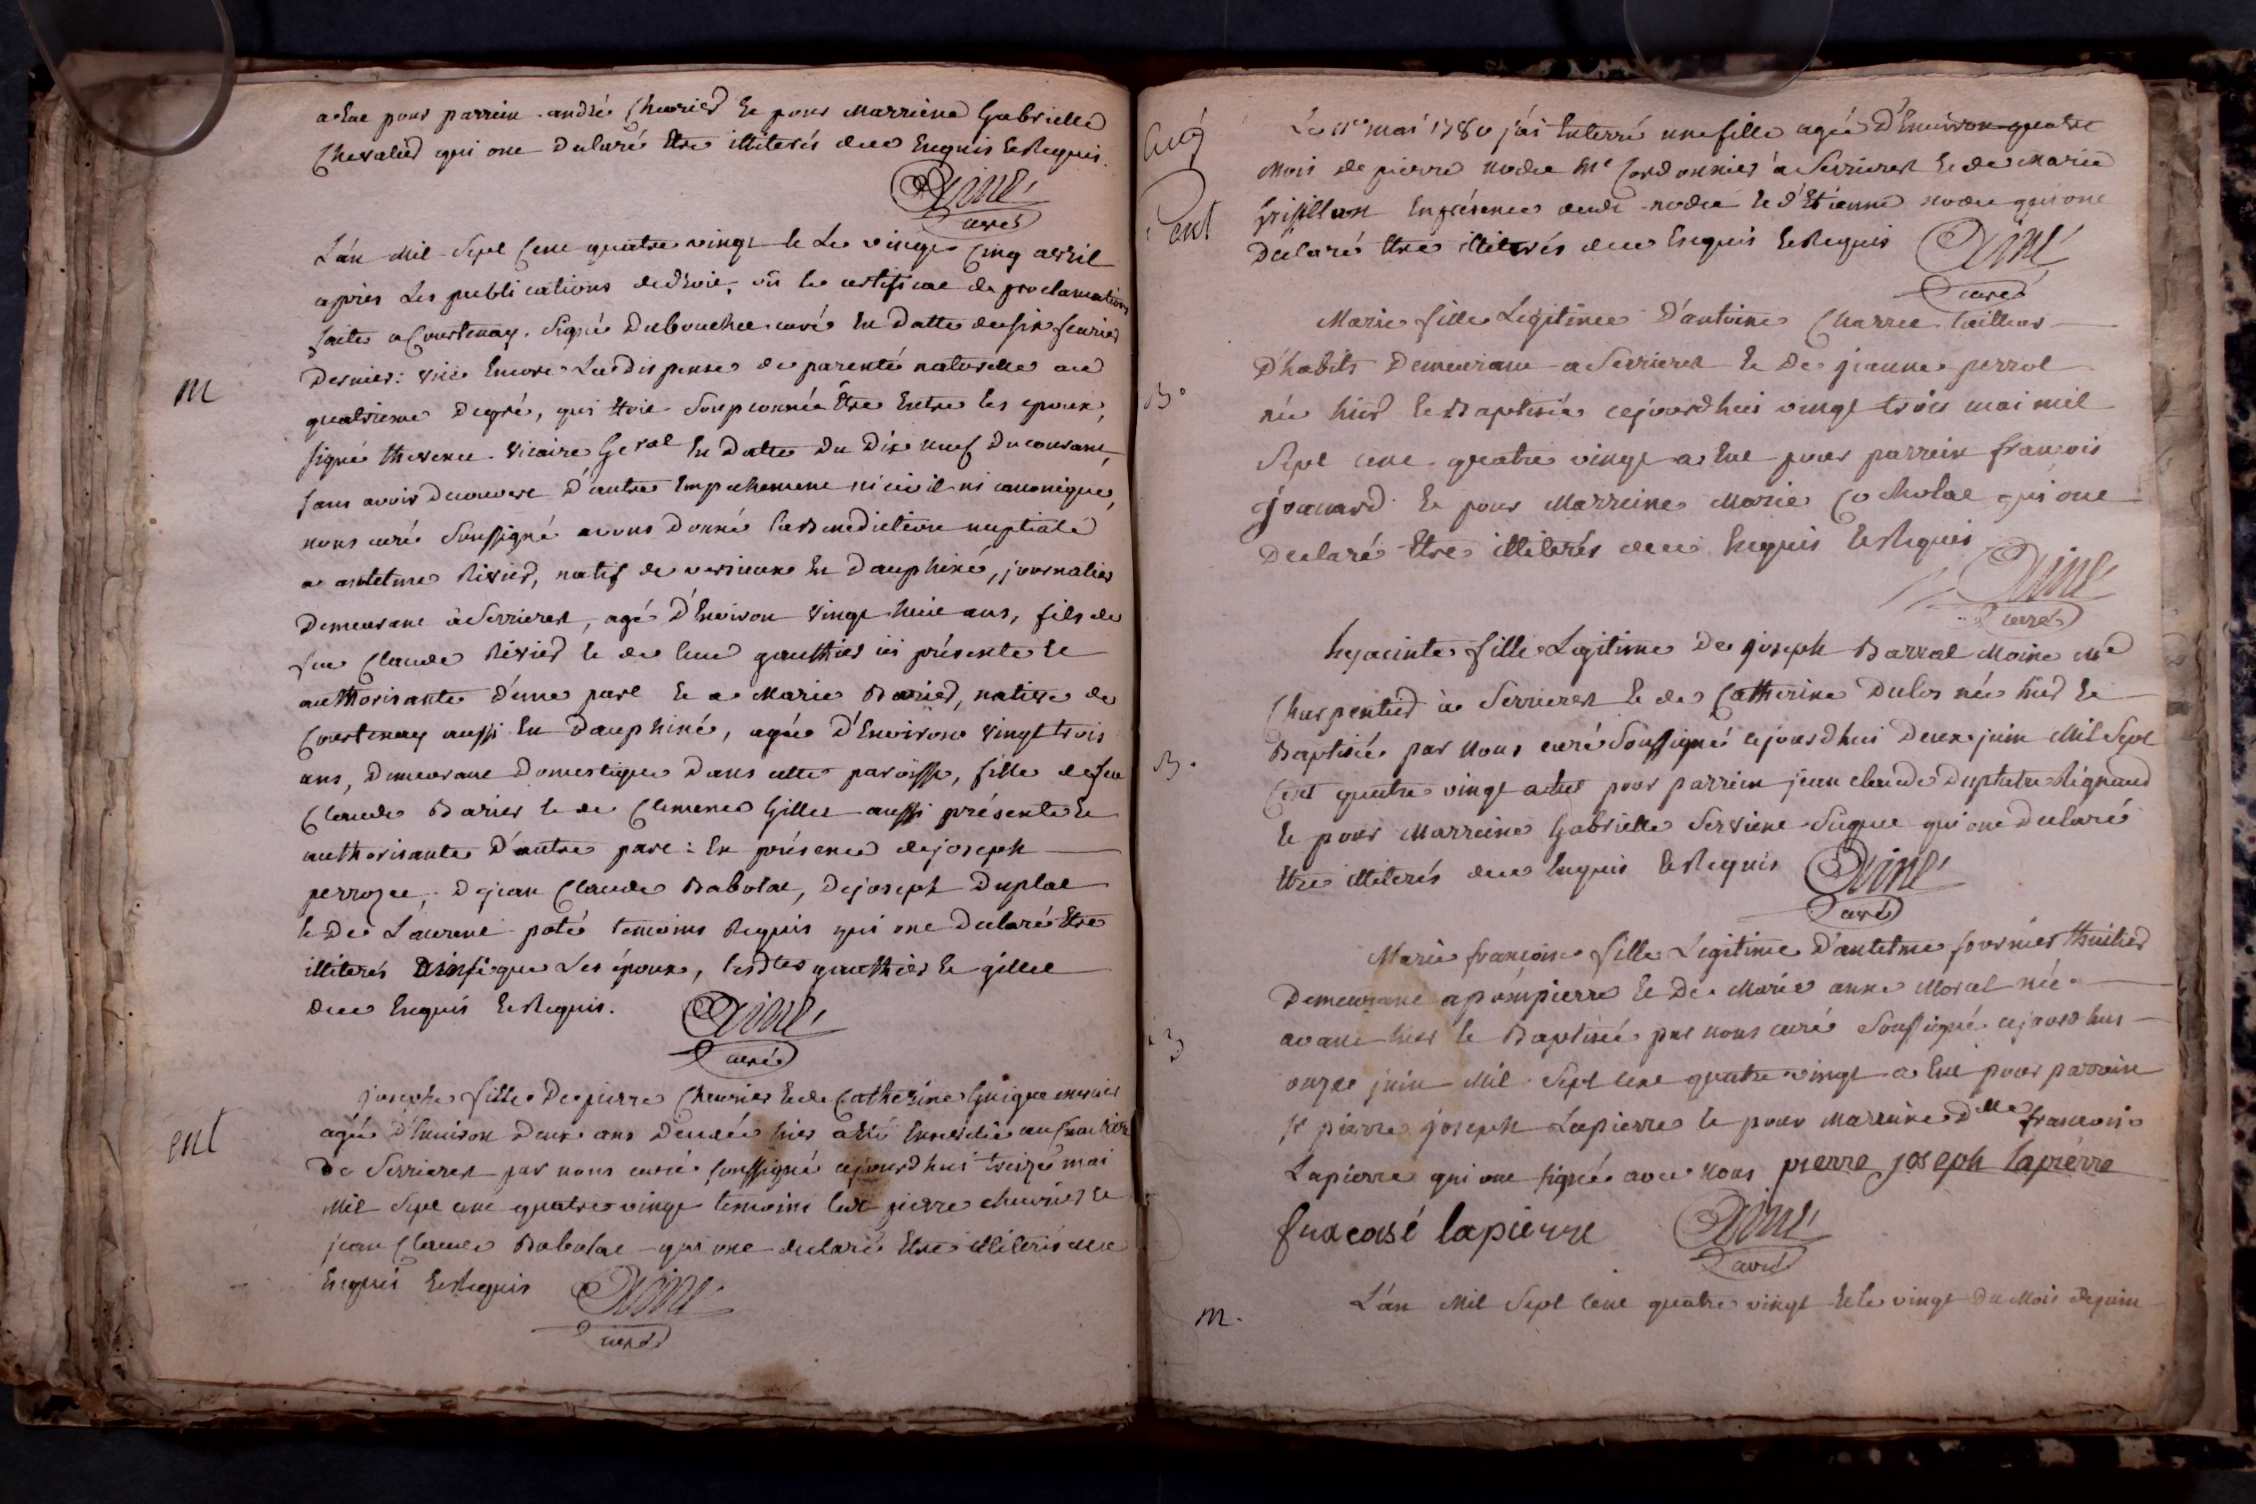 a eue pour parrein andré Chevrier et pour Marreine Gabrielle
Chevalier qui ont declaré être illiterés de ce Enquis et Requis.
curé
L'an Mil Sept Cent quatre vingt et Le vingt Cinq avril
après Les publications de droit, vû le certificat de proclamations
faites a Courtenay. Signé Dubouchet curé En datte du six fevrier
Dernier: vüe Encore La dispense de parenté naturelle au
quatrieme degré, qui étoit Soupconnée Être Entre les epoux,
signé thevenet vicaire Geral En datte du Dix neuf du courant,
sans avoir decouvert d'autre Empechement ni civil ni canonique,
nous curé Soussigné avons donné la Benediction nuptiale
a antelme Rivier, natif de en Dauphiné, journalier
Demeurant à Serrieres, agé d'Environ vingt huit ans, fils de
feu Claude Rivier et de gauthier ici présente et
authorisante d'une part et a Marie Barier, native de
Courtenay aussi En Dauphiné, agée d'Environ vingt trois
ans, Demeurant Domestique Dans cette paroisse, fille de feu
Claude Barier et de Clemence Gillet aussi présente et
authorisante d'autre part: En présence de joseph
perrozet, De jean Claude Babolat, De joseph Duplat
et De Laurent poté temoins Requis qui ont Declaré Être
illiterés Ainsi que Les époux, lesdtes gauthier et gillet
De ce Enquis et Requis.
curé
josephe fille De pierre Chevrier et de Catherine Guigue
agée d'Environ Deux ans Decedée hier a été Ensevelie au
De Serrieres par nous curé soussigné cejourd'hui treize mai
Mil Sept cent quatre vingt temoins led pierre chevrier et
jean Claude Babolat qui ont declaré Être illiterés de ce
Enquis et Requis
curé
m
ent
Le mai 1780 j'ai Enterré une fille agée D'Environ quatre
Mois de pierre nodet Me Cordonnier a Serrieres et de Marie
Grisillon En présence nodet et d'Etienne nodet qui ont
Declaré Etre illiterés de ce Enquis et Requis
curé
Marie fille Legitime D'antoine Charvet tailleur
D'habits Demeurant a Serrieres et De jeanne perrot
née hier et Baptisée cejourd'hui vingt trois mai mil
Sept cent quatre vingt a eue pour parrein francois
jouvard et pour Marreine Marie Cocholat qui ont
Declaré Etre illiterés de ce Enquis et Requis
curé
hyacinte fille Legitime De joseph Barral Moine Me
Charpentier à Serrieres et de Catherine Duclos née hier et
Baptisée par Nous curé Soussigné cejourd'hui Deux juin Mil Sept
Cent quatre vingt a eue pour parrein jean claude Duplatre Rignaud
et pour Marreine Gabrielle Servient qui ont Declaré
Etre illiterés de ce Enquis et Requis
curé
Marie françoise fille Legitime D'antelme fournier thuilier
Demeurant a pompierre et De Marie anne Morat née
avant hier et Baptisée par nous curé Soussigné cejourd'hui
onze juin Mil Sept cent quatre vingt a eue pour parrein
sr pierre joseph Lapierre et pour Marreine Dlle francoise
Lapierre qui ont signée avec Nous pierre joseph lapierre
francoisé lapierre
curé
L'an Mil Sept Cent quatre vingt et le vingt Du Mois de juin
ent
B.
B.
B
m.